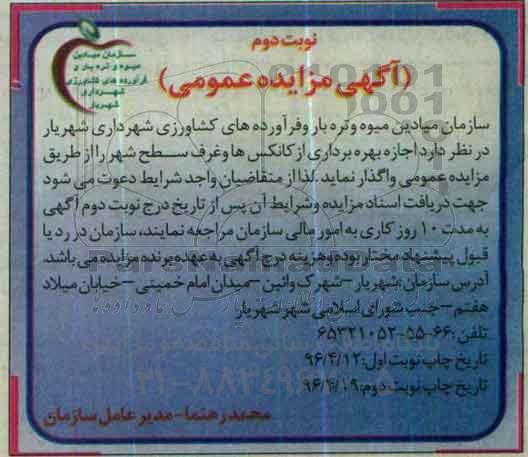 نوبت دوم
(آگهی مزایده عمومی)
سازمان میادین
میوه و تره بار و
فرآورده های کشاورزی
شهرداری
شهریار
سازمان میادین میوه وتره بار وفرآورده های کشاورزی شهرداری شهریار
در نظر دارد اجازه بهره برداری از کانکس ها وغرف سطح شهر را از طریق
مزایده عمومی واگذار نماید .لذا از متقاضیان واجد شرایط دعوت می شود
جهت دریافت اسناد مزایده وشرایط آن پس از تاریخ درج نوبت دوم آگهی
به مدت ۱۰ روز کاری به امور مالی سازمان مراجعه نمایند، سازمان در رد یا
قبول پیشنهاد مختار بوده وهزینه درج آگهی به عهده برنده مزایده می باشد.
آدرس سازمان :شهریار –شهرک وائین –میدان امام خمینی –خیابان میلاد
هفتم –جنب شورای اسلامی شهر شهریار
تلفن :۶۶-۵۵-۶۵۳۲۱۰۵۲
تاریخ چاپ نوبت اول:۹۶/۴/۱۲
تاریخ چاپ نوبت دوم:۹۶/۴/۱۹
محمد رهنما-مدیر عامل سازمان